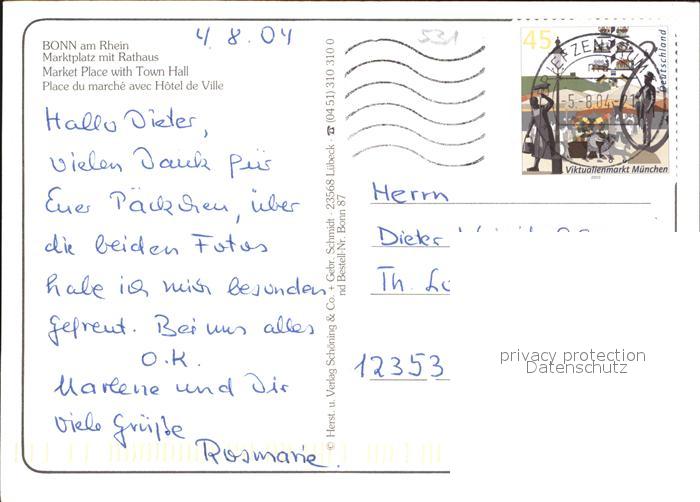 4.8.04
531
BONN am Rhein
Marktplatz mit Rathaus
Market Place with Town Hall
Place du marché avec Hôtel de Ville
Hallo Dieter,
vielen Dank für
Euer Päckchen, über
die beiden Fotos
habe ich mich besonders
gefreut. Bei uns alles
O.K.
Marlene und Dir
viele Grüße
Rosmarie.
© Herst. u. Verlag Schöning & Co. + Gebr. Schmidt · 23568 Lübeck · ☎ (04 51) 310 310 0
nd Bestell-Nr. Bonn 87
45
Deutschland
-5.-8.04
Viktualienmarkt München
Herrn
Dieter
Th.
12353
privacy protection
Datenschutz